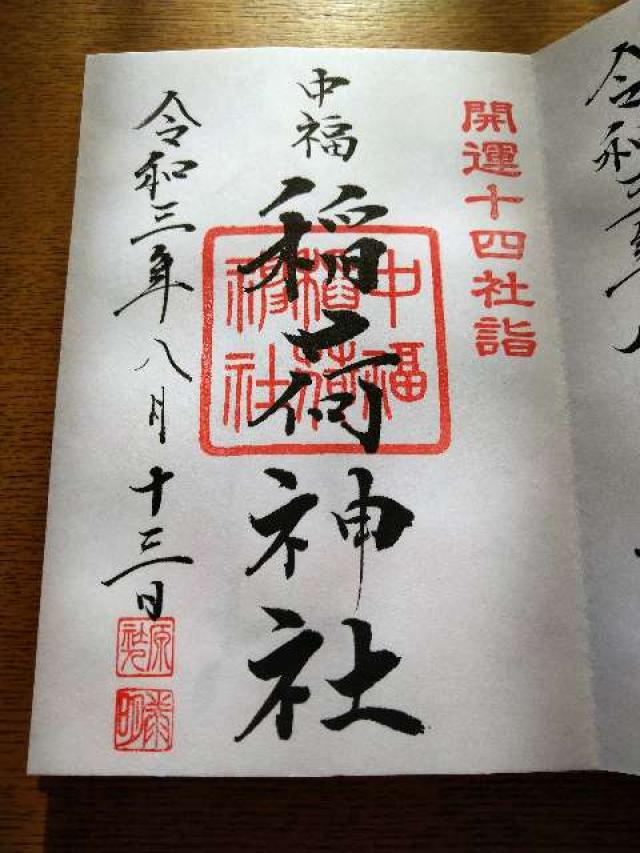 開運十四社詣
中福
稲荷神社
中福
稲荷
神社
令和三年八月十三日